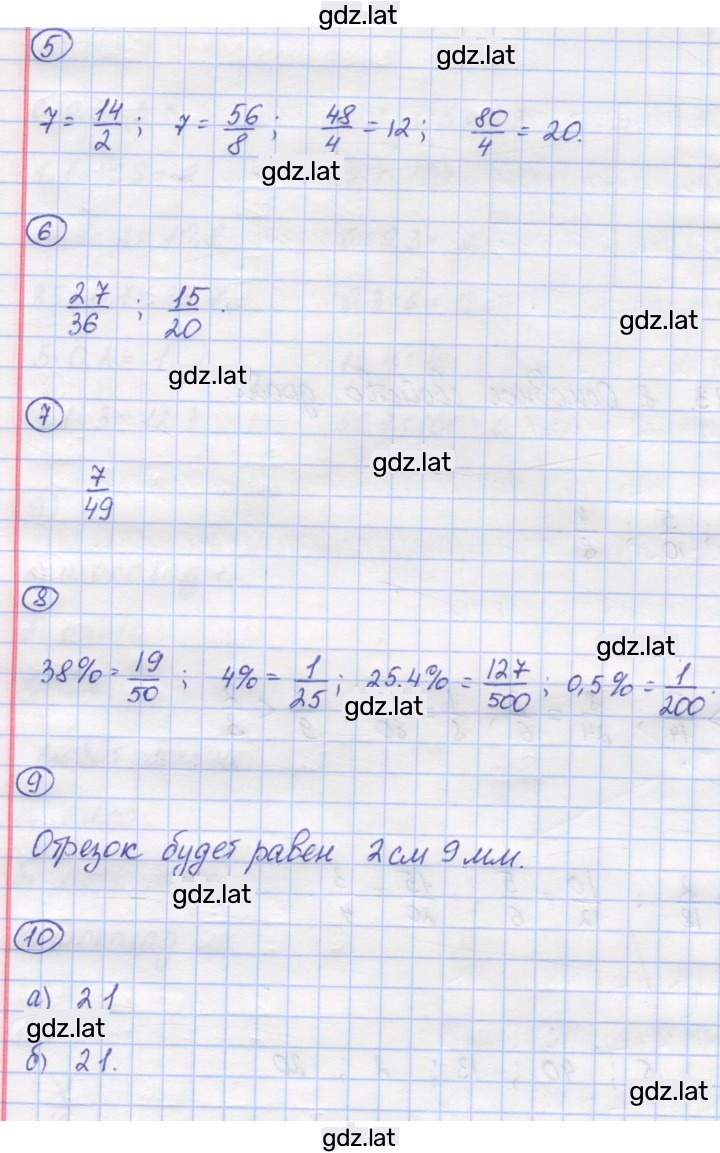 gdz.lat
5
gdz.lat
7 = 14/2 ; 7 = 56/8 ; 48/4 = 12 ; 80/4 = 20.
gdz.lat
6
27/36 ; 15/20 .
gdz.lat
gdz.lat
7
gdz.lat
7/49
8
gdz.lat
38% = 19/50 ; 4% = 1/25 ; 25.4% = 127/500 ; 0,5% = 1/200 .
gdz.lat
9
Отрезок будет равен 2см 9мм.
gdz.lat
10
а) 21
gdz.lat
б) 21.
gdz.lat
gdz.lat